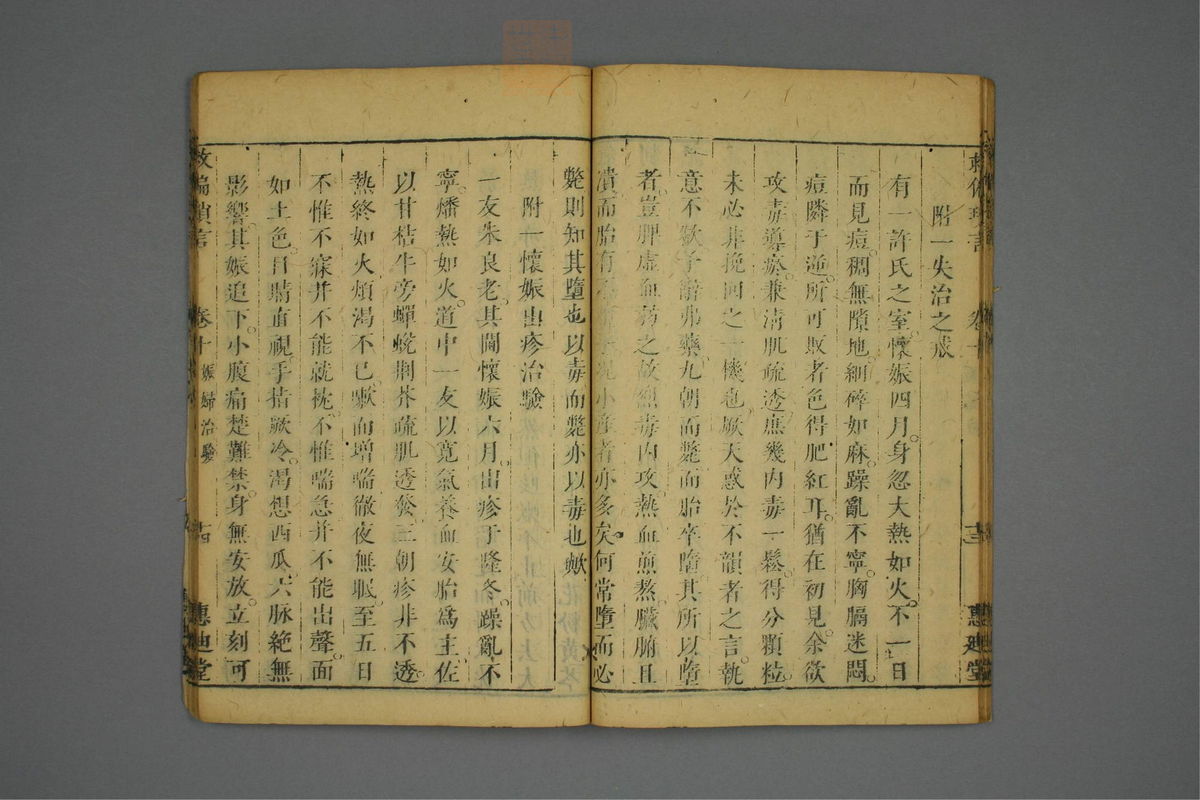 附一失治之戒
有一許氏之室懷娠四月身忽大熱如火不一日
而見痘稠無隙地細碎如麻躁亂不寧胸膈迷悶
痘隣于逆所可取者色得肥紅耳猶在初見余欲
攻毒導瘀兼清肌疏透庶幾内毒一鬆得分顆粒
未必非挽回之一機也厥天惑於不韻者之言執
意不欲予辭弗藥九朝而斃而胎卒墮其所以墮
者豈脾虛血弱之故烈毒内攻熱血煎熬臟腑且
潰而胎有不小產者亦多矣何常墮而必
斃則知其墮也以毒而斃亦以毒也歟
附一懷娠出疹治驗
一友朱良老其閫懷娠六月出疹于隆冬躁亂不
寧燔熱如火道中一友以寬氣養血安胎爲主佐
以甘桔牛旁蟬蛻荆芥疏肌透發三朝疹非不透
熱終如火煩渴不已嗽而增喘徹夜無眠至五日
不惟不寐并不能就枕不惟喘急并不能出聲面
如土色目睛直視手指厥冷渴想西瓜六脉絶無
影響其娠追下小腹痛楚難禁身無安放立刻可
救偏瑣言 卷十 娠婦治驗 十四 惠迪堂
卷十 十三 惠迪堂